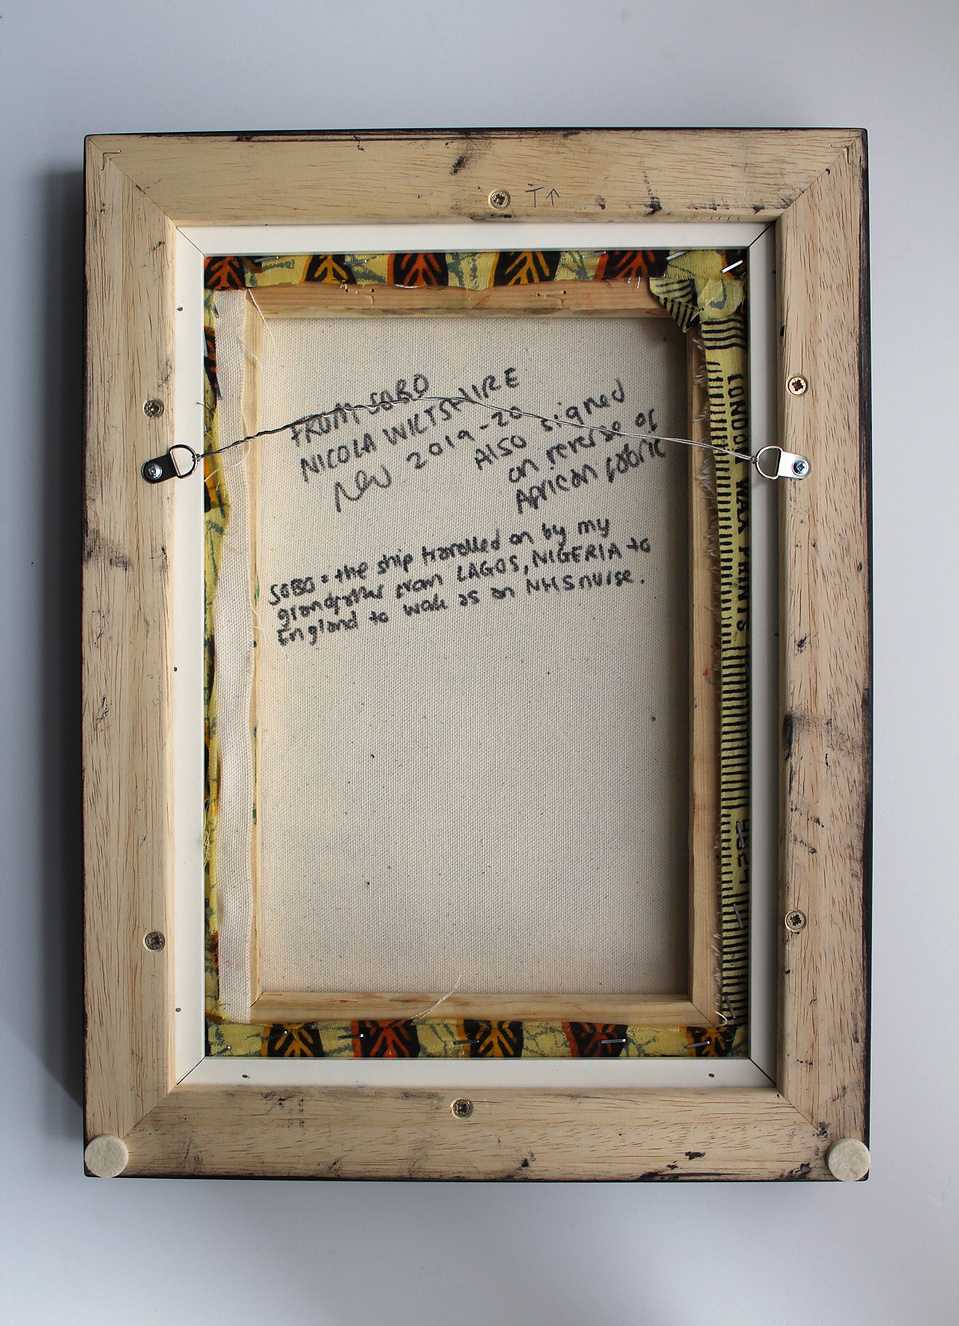 T↑
FROM SOBO
NICOLA WILTSHIRE
NW 2019-20
Also signed
on reverse of
African fabric
SOBO = the ship travelled on by my
grandfather from LAGOS, NIGERIA to
England to work as an NHS nurse.
LONDON WAX PRINTS